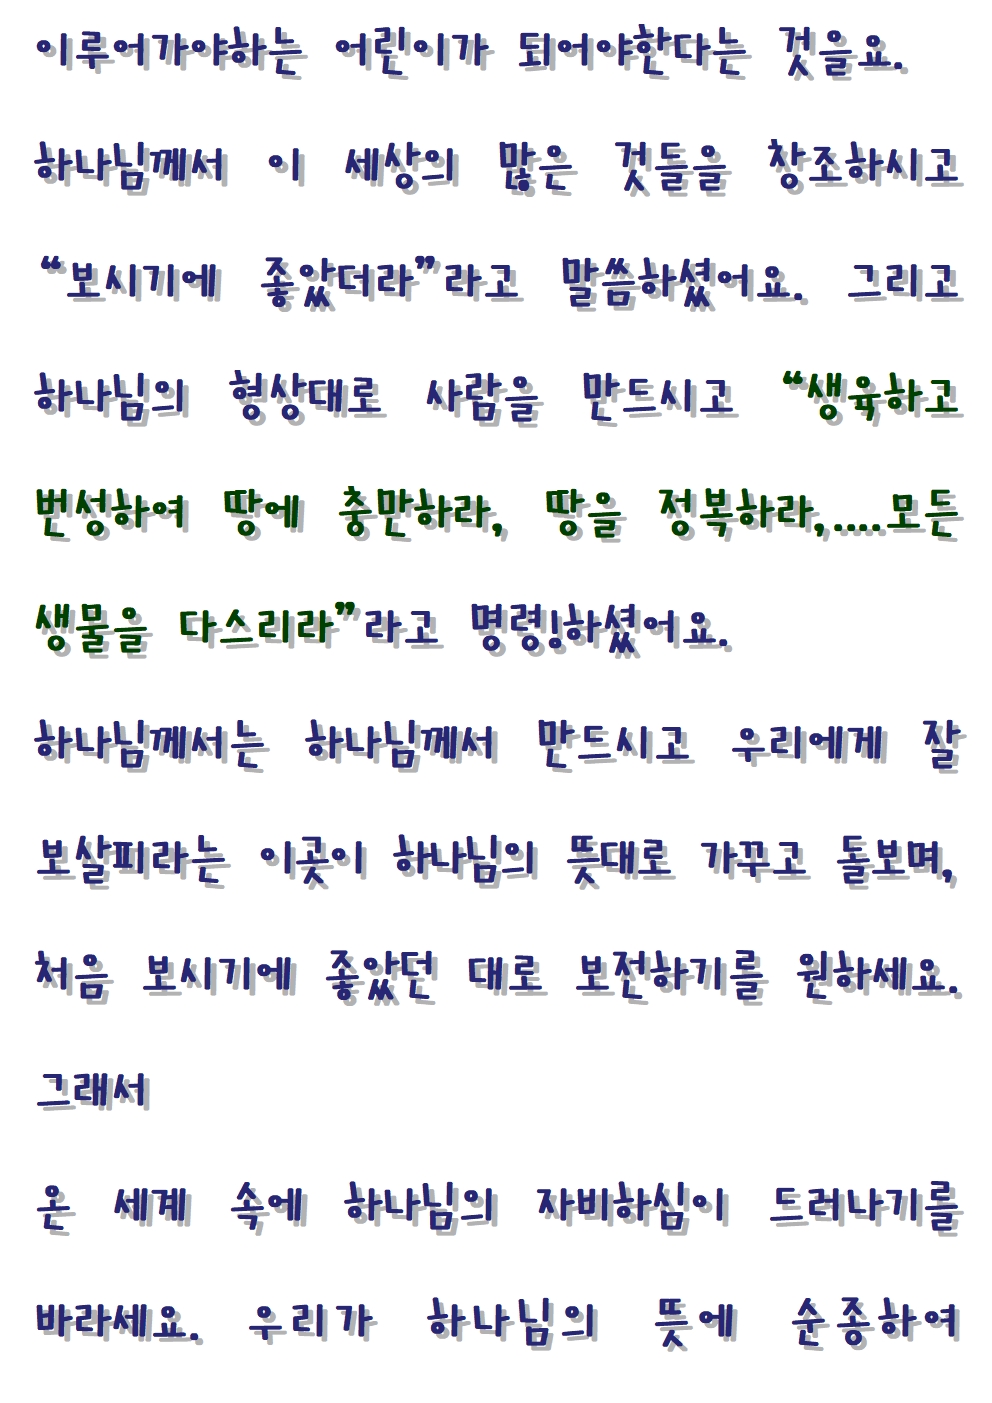 이루어가야하는 어린이가 되어야한다는 것을요.
하나님께서 이 세상의 많은 것들을 창조하시고
“보시기에 좋았더라”라고 말씀하셨어요. 그리고
하나님의 형상대로 사람을 만드시고 “생육하고
번성하여 땅에 충만하라, 땅을 정복하라,....모든
생물을 다스리라”라고 명령!하셨어요.
하나님께서는 하나님께서 만드시고 우리에게 잘
보살피라는 이곳이 하나님의 뜻대로 가꾸고 돌보며,
처음 보시기에 좋았던 대로 보전하기를 원하세요.
그래서
온 세계 속에 하나님의 자비하심이 드러나기를
바라세요. 우리가 하나님의 뜻에 순종하여